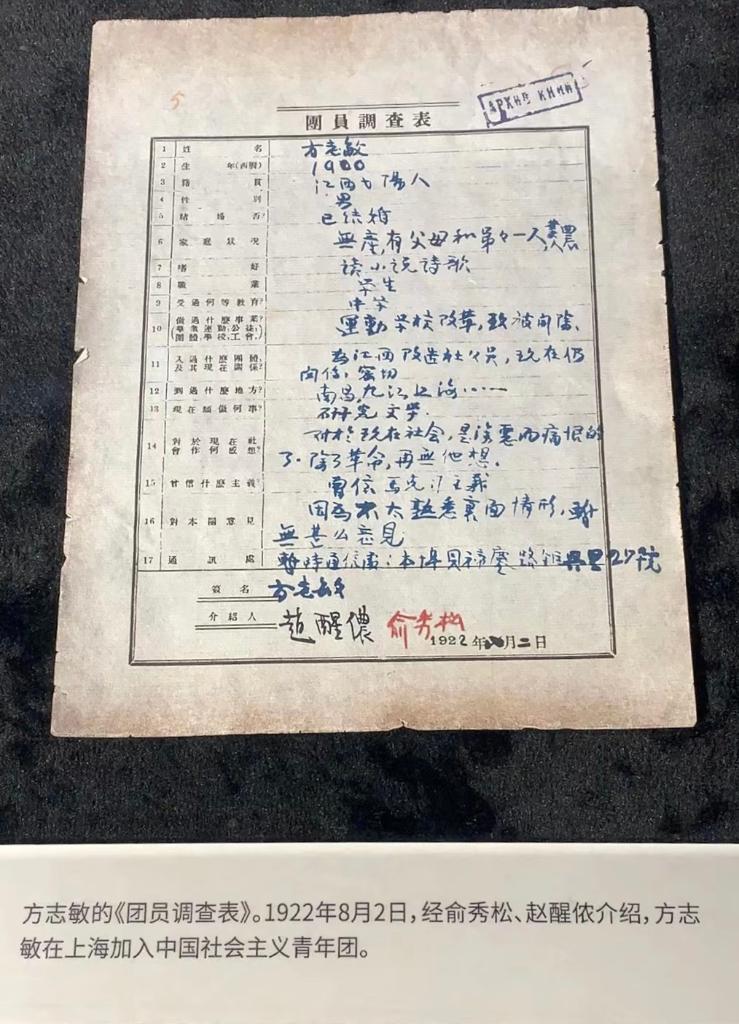 5
АРХИВ КИМА
團員調查表
1 姓名 方志敏
2 生年(西曆) 1900
3 籍貫 江西弋陽人
4 性別 男
5 婚否? 已结婚
6 家庭狀况 無產,有父母和弟々一人
7 嗜好 读小说诗歌
8 職業 学生
9 受過何等教育? 中学
10 做過什麽事業?(學業運動,公徒,團體學校,工會) 運動学校改革,致被開除.
11 入過什麽團體及其現在關係? 為江西改造社々員,现在仍
関係密切
12 到過什麽地方? 南昌,九江,上海……
13 現在做何事? 研究文学.
14 對於現在社會作何感想? 对於现在社会,是
了.除了革命,再無他想.
15 曾信什麽主義? 曾信马克斯主義
16 對本團意見 因為不大熟悉裏面情形,暫
無甚么意见
17 通訊處 暫時通信處:本埠貝禘鏖路 27號
簽名 方志敏
介紹人 趙醒儂 俞秀松
1922年 月二日
方志敏的《团员调查表》。1922年8月2日,经俞秀松、赵醒侬介绍,方志
敏在上海加入中国社会主义青年团。